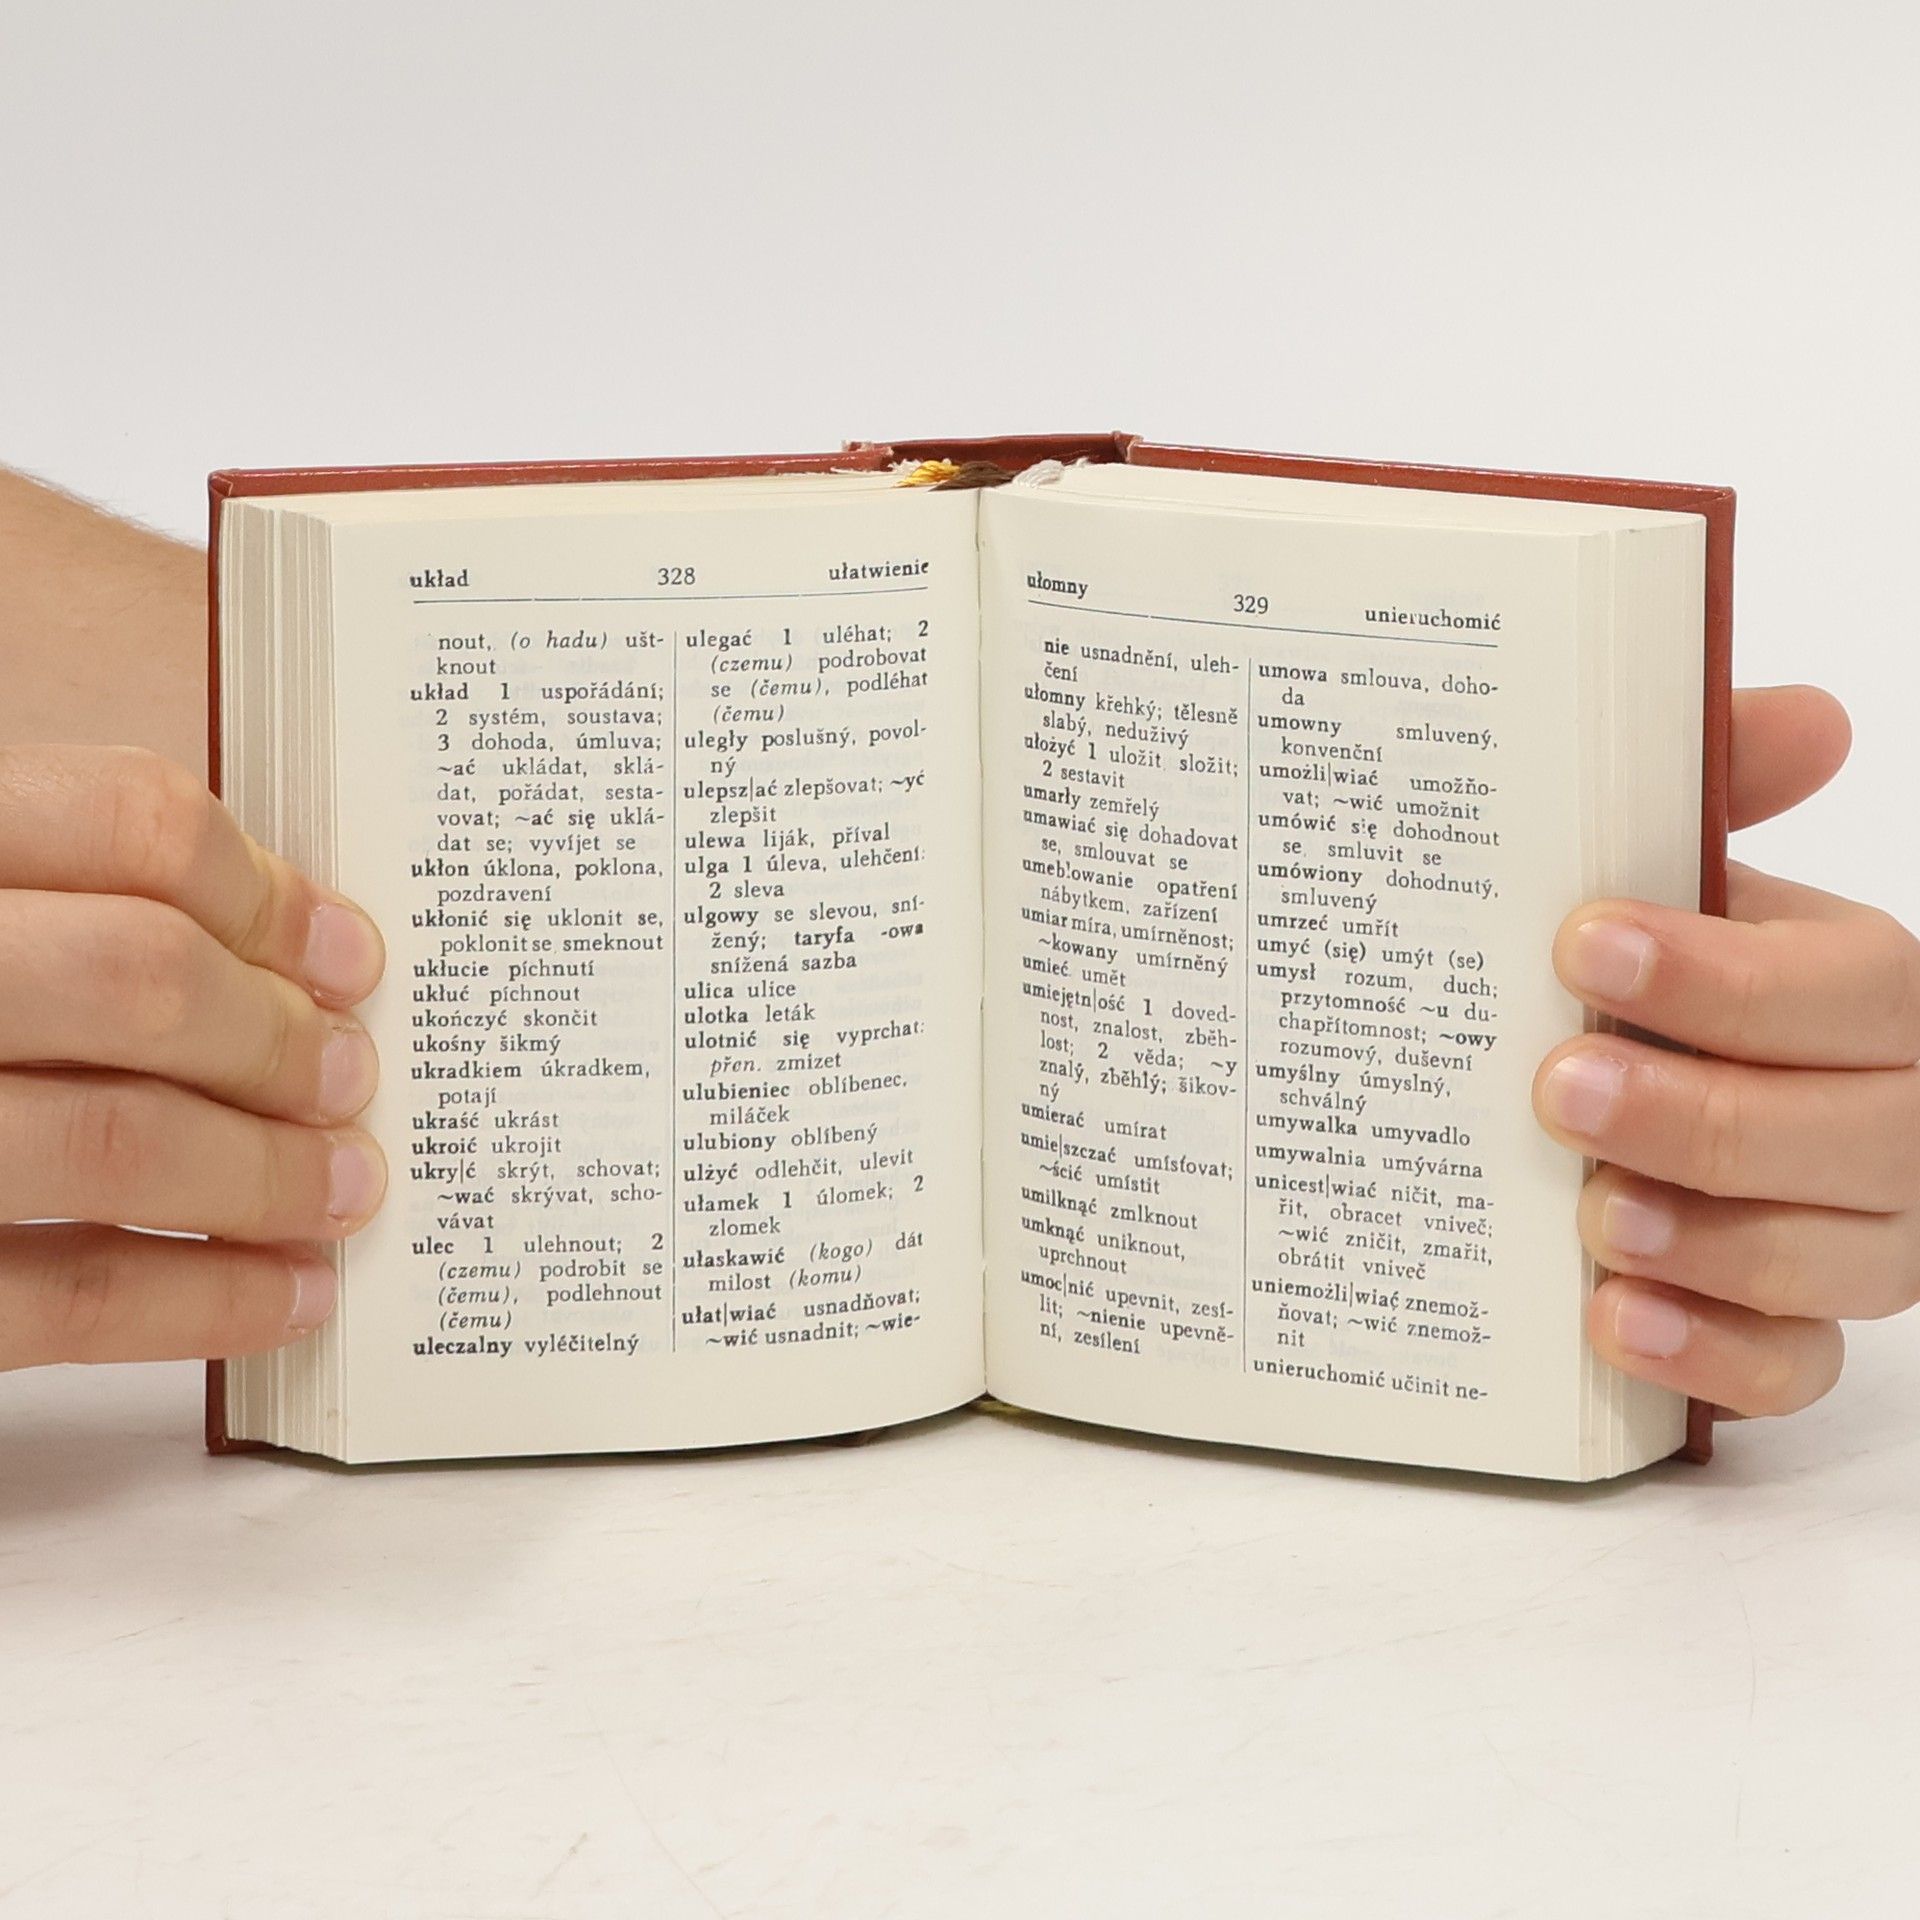 układ 328 ułatwienie
nout, (o hadu) ušt-
knout
układ 1 uspořádání;
2 systém, soustava;
3 dohoda, úmluva;
~ać ukládat, sklá-
dat, pořádat, sesta-
vovat; ~ać się uklá-
dat se; vyvíjet se
ukłon úklona, poklona,
pozdravení
ukłonić się uklonit se,
poklonit se, smeknout
ukłucie píchnutí
ukłuć píchnout
ukończyć skončit
ukośny šikmý
ukradkiem úkradkem,
potají
ukraść ukrást
ukroić ukrojit
ukry|ć skrýt, schovat;
~wać skrývat, scho-
vávat
ulec 1 ulehnout; 2
(czemu) podrobit se
(čemu), podlehnout
(čemu)
uleczalny vyléčitelný
ulegać 1 uléhat; 2
(czemu) podrobovat
se (čemu), podléhat
(čemu)
uległy poslušný, povol-
ný
ulepsz|ać zlepšovat; ~yć
zlepšit
ulewa liják, příval
ulga 1 úleva, ulehčení;
2 sleva
ulgowy se slevou, sní-
žený; taryfa -owa
snížená sazba
ulica ulice
ulotka leták
ulotnić się vyprchat;
přen. zmizet
ulubieniec oblíbenec,
miláček
ulubiony oblíbený
ulżyć odlehčit, ulevit
ułamek 1 úlomek; 2
zlomek
ułaskawić (kogo) dát
milost (komu)
ułat|wiać usnadňovat;
~wić usnadnit; ~wie-
ułomny 329 unieruchomić
nie usnadnění, uleh-
čení
ułomny křehký; tělesně
slabý, neduživý
ułożyć 1 uložit, složit;
2 sestavit
umarły zemřelý
umawiać się dohadovat
se, smlouvat se
umeblowanie opatření
nábytkem, zařízení
umiar míra, umírněnost;
~kowany umírněný
umieć umět
umiejętn|ość 1 doved-
nost, znalost, zběh-
lost; 2 věda; ~y
znalý, zběhlý; šikov-
ný
umierać umírat
umie|szczać umísťovat;
~ścić umístit
umilknąć zmlknout
umknąć uniknout,
uprchnout
umoc|nić upevnit, zesí-
lit; ~nienie upevně-
ní, zesílení
umowa smlouva, doho-
da
umowny smluvený,
konvenční
umożli|wiać umožňo-
vat; ~wić umožnit
umówić się dohodnout
se, smluvit se
umówiony dohodnutý,
smluvený
umrzeć umřít
umyć (się) umýt (se)
umysł rozum, duch;
przytomność ~u du-
chapřítomnost; ~owy
rozumový, duševní
umyślny úmyslný,
schválný
umywalka umyvadlo
umywalnia umývárna
unicest|wiać ničit, ma-
řit, obracet vniveč;
~wić zničit, zmařit,
obrátit vniveč
uniemożli|wiać znemož-
ňovat; ~wić znemož-
nit
unieruchomić učinit ne-